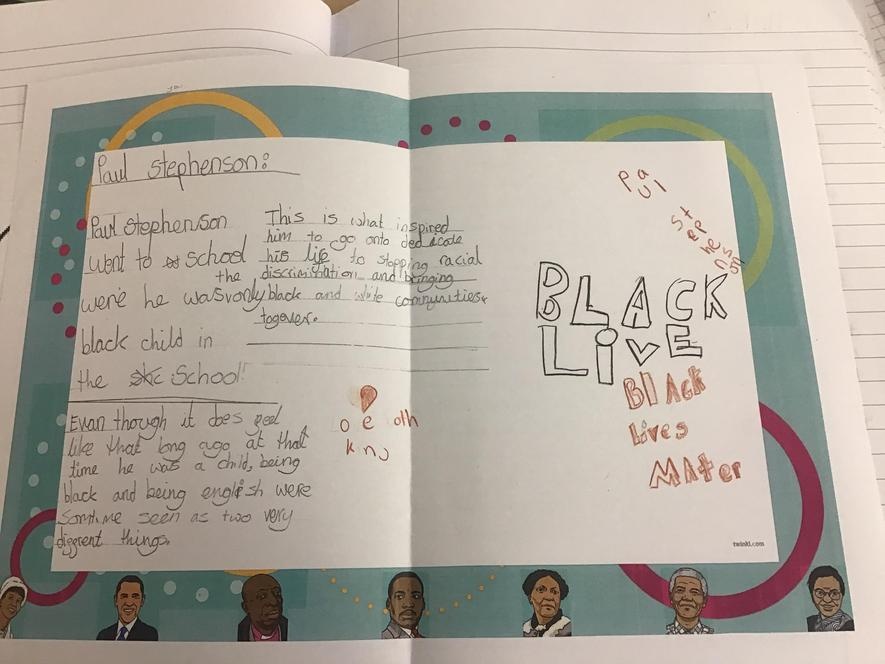 Paul Stephenson:
Paul Stephenson
went to school
the
were he was only
black child in
the School!
This is what inspired
him to go onto dedacate
his life to stopping racial
discrimination and bringing
black and white communities
togever.
Evan though it does feel
like that long ago at that
time he was a child, being
black and being english were
somtime seen as two very
different things.
Paul
Stephenson
BLACK
LiVE
BlAck
Lives
MAter
twinkl.com